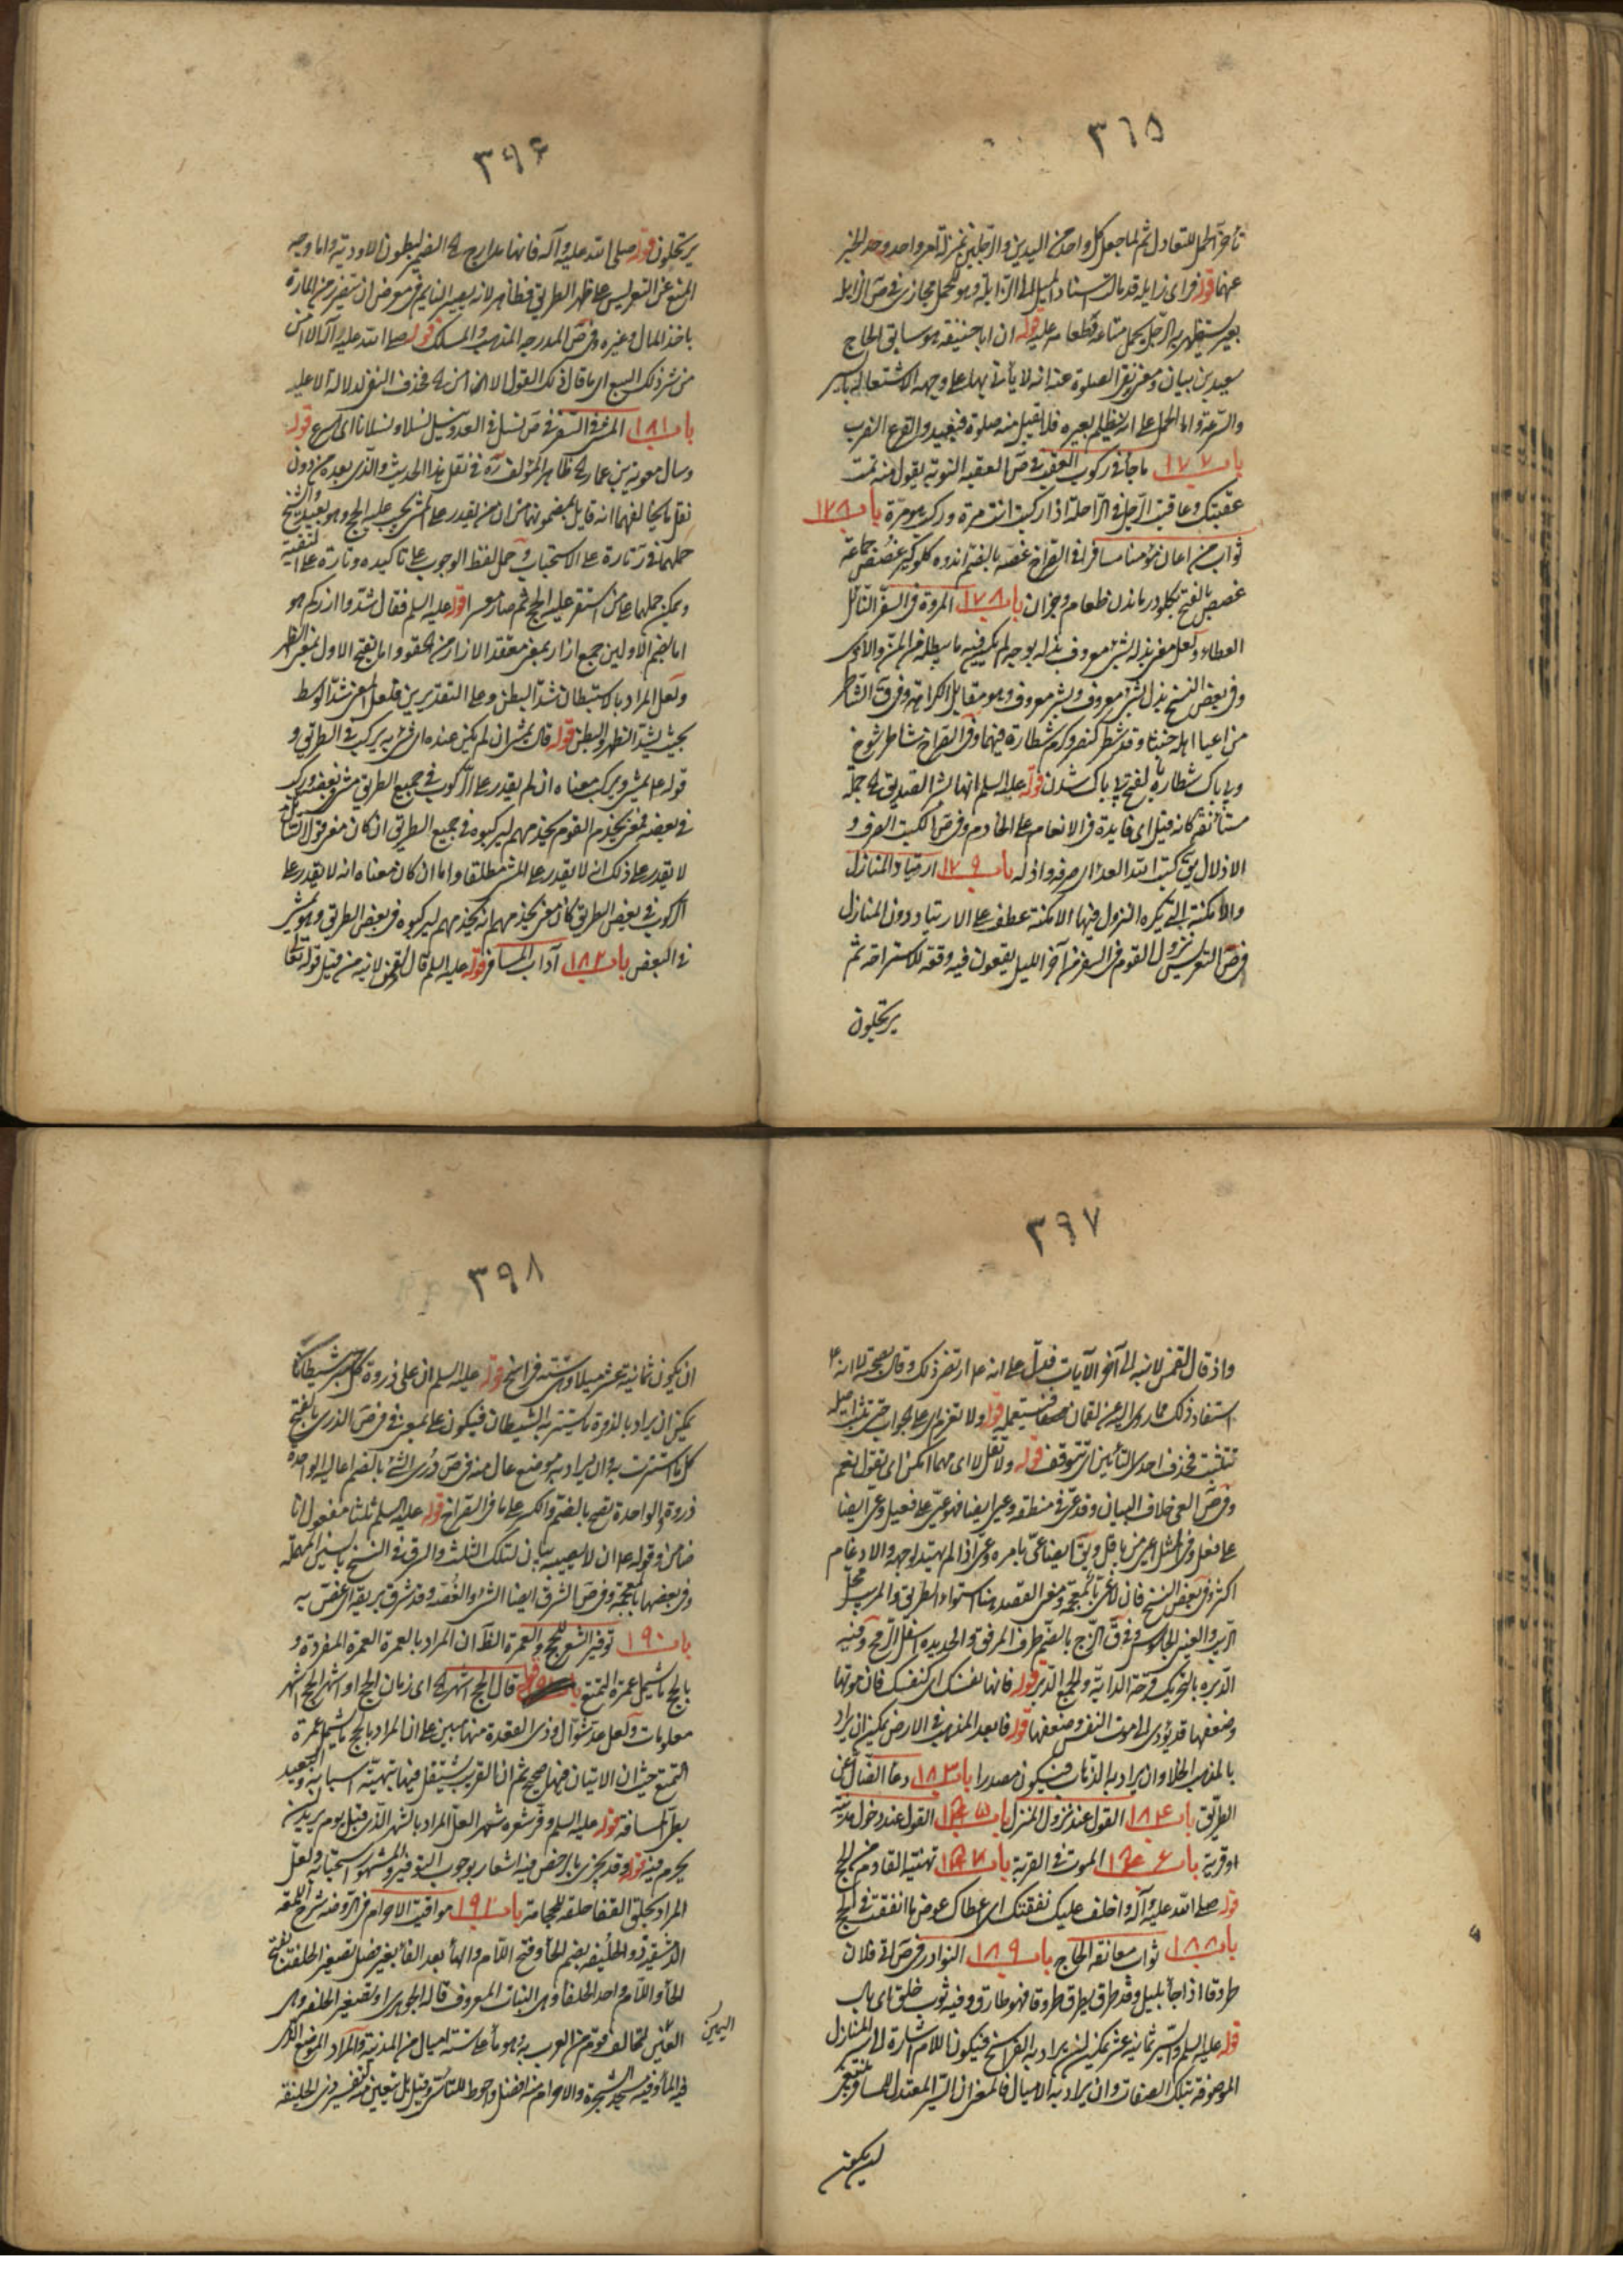 ٣٦٥
تأخر الحمل للتعادل ثم لما جعل كل واحد من اليدين والرجلين بمنزلة امر واحد وحد الخبر
عنهما قوله فراى زاملة قد مالت اسناد الميل الى الزاملة وهو للحمل مجازى فى ص الزاملة
بعير يستظهر به الرجل يحمل متاعه وطعامه عليه قوله ان ابا حنيفة هو سابق الحاج
سعيد بن بيان ومعنى نفى الصلوة عنه انه لا يأتى بها على وجهه الاشتغاله بالسير
والسرعة واما الحمل على انه يظلم بعيره فلا تقبل منه صلوة فبعيد والقرع الضرب
باب ١٧٧ ما جاء فى ركوب العقب فى ص العقبة النوبة يقول منه تمت
عقبتك وعاقبت الرجل فى الراحلة اذا ركبت انت مرة وركب هو مرة باب ١٧٨
ثواب من اعان مؤمنا مسافرا فى القراح غصه بالضم اندوه كلوگير غصص جماعة
غصص بالفتح بگلو در ماندن طعام وجز ان باب ١٧٨ المروة فى السفر النائل
العطاء ولعل معنى بذله بشئ معروف بذله بوجه لم يكن فيه ما يبطله من المن والاذى
وفى بعض النسخ بذل بشر معروف وبشر معروف وهو مقابل الكراهة وفى ق الشاطر
من اعيا اهله خبثا وقد شطر كنصر وكرم شطارة فيهما وفى القراح شاطر شوخ
وبى باك شطارة بالفتح بى باك شدن قوله عليه السلم انها الشر الصديق جملة
مستأنفة كانه قيل اى فايدة فى الانعام على الخادم وفى ص الكبت الصرف و
الاذلال يق كبت الله العدو اى صرفه واذله باب ١٧٩ ارتياد المنازل
والامكنة التى يكره النزول فيها الامكنة عطف على الارتياد دون المنازل
فى ص التعريس نزول القوم فى السفر من آخر الليل يقعون فيه وقعة للاستراحة ثم
يرتحلون
٣٩۶
يرتحلون قوله صلى الله عليه وآله فانها مدارج السباع لبطون الاودية واما وجه
المنع عن التعريس على ظهر الطريق فظاهر لانه يصير النايم فى معرض ان يتضرر من المارة
باخذ المال وغيره وفى ص المدرجة المذهب والمسلك قوله صلى الله عليه وآله الا امن
من شر ذلك السبع اى ما قال ذلك القول الا امن فحذف النفى لدلالة الا عليه
باب ١٨١ المشى فى السفر فى ص نسل فى العدو ينسل نسلا ونسلانا اى اسرع قوله
وسال معوية بن عمار ظاهر المؤلف ره فى نقل هذا الحديث والذى بعده من دون
نقل ما يخالفهما انه قايل بمضمونهما من ان من يقدر على المشى يجب عليه الحج وهو بعيد والشيخ
حملهما فى ر تارة على الاستحباب وحمل لفظ الوجوب على تاكيده وتارة على التقية
ويمكن حملهما على من استقر عليه الحج ثم صار معسرا قوله عليه السلم فقال شدوا ازركم هو
اما بضم الاولين جمع ازار بمعنى معقد الازار من الحقو واما بفتح الاول بمعنى الظهر
ولعل المراد بالاستبطان شد البطن وعلى التقديرين فلعل المعنى شد الوسط
بحيث يشد الظهر والبطن قوله قال يمشى ان لم يكن عنده اى شئ يركب فى الطريق و
قوله ع يمشى ويركب معناه ان لم يقدر على الركوب فى جميع الطريق مشى بعضه وركب
فى بعضه فمعنى يخدم القوم يخدمهم ليركبوه فى جميع الطريق ان كان معنى قول السائل
لا يقدر على ذلك انه لا يقدر على المشى مطلقا واما ان كان معناه انه لا يقدر على
الركوب فى بعض الطريق كان معنى يخدمهم انه يخدمهم ليركبوه فى بعض الطريق وهو يمشى
فى البعض باب ١٨٢ آداب المسافر قوله عليه السلم قال لقمن لابنه من قبيل قوله تعالى
٣٩٧
واذ قال لقمن لابنه الى آخر الآيات فيدل على انه ع ارتضى ذلك وقال بصحته لا انه ع
استفاد ذلك مما روى اليه عن لقمان فيستعمله قوله ولا تعزم اى على الجواب حتى تثبت اصله
تتثبت فحذف احدى التائين اى تتوقف قوله ولا تقل لا اى مهما امكن اى تقول نعم
وفى ص العى خلاف البيان وقد عى فى منطقه وعيى ايضا فهو عيى على فعيل وعى ايضا
على فعل وفى المثل اعيى من باقل ويق ايضا عى بامره وعيى اذا لم يهتد لوجهه والادغام
اكثر وفى بعض النسخ فان لا غى بالمعجمة ومعنى القصد هنا استواء الطريق والمرصد محل
الدبر والعين الجاسوس وفى ق الزج بالضم طرف المرفق والحديدة اسفل الرمح وفيه
الدبرة بالتحريك قرحة الدابة والجمع الدبر قوله فانها نفسك اى كنفسك فان موتها
وضعفها قد يؤدى الى موت النفس وضعفها قوله فابعد المذهب فى الارض يمكن ان يراد
بالمذهب الخلا وان يراد به الذهاب فيكون مصدرا باب ١٨٣ دعاء الضال عن
الطريق باب ١٨۴ القول عند نزول المنزل باب ١٨۵ القول عند دخول مدينة
او قرية باب ١٨۶ الموت فى الغربة باب ١٨٧ تهنئة القادم من الحج
قوله صلى الله عليه وآله واخلف عليك نفقتك اى اعطاك عوض ما انفقت فى الحج
باب ١٨٨ ثواب معانقة الحاج باب ١٨٩ النوادر فى ص اتى فلان
طروقا اذا جاء بليل وقد طرق يطرق طروقا فهو طارق وفيه ثوب خلق اى بال
قوله عليه السلم وسير ثمانية عشر يمكن ان يراد به الفراسخ فيكون اللام اشارة الى المنازل
الموصوفة بتلك الصفات وان يراد به الاميال فالمعنى ان السير المعتدل للمسافر ينبغى
ان يكون
٣٩٨
ان يكون ثمانية عشر ميلا وهى ستة فراسخ قوله عليه السلم ان على ذروة كل جسر شيطانا
يمكن ان يراد بالذروة ما يستتر به الشيطان فيكون على بمعنى فى فى ص الذرى بالفتح
كل ما استترت به وان يراد به موضع عال منه فى ص ذرى الشئ بالضم اعاليه الواحدة
ذروة والواحدة تصح بالضم والكسر على ما فى القراح قوله عليه السلم ثلثا مفعول انا
ضامن وقوله ع ان لا يصيبه بيان لتلك الثلث والسرق فى النسخ بالسين المهملة
وفى بعضها بالمعجمة وفى ص الشرق ايضا الشجا والغصة وقد شرق بريقه اى غص به
باب ١٩٠ توفير الشعر للحج والعمرة الظ ان المراد بالعمرة العمرة المفردة و
بالحج ما يشمل عمرة التمتع قوله قال الحج اشهر اى زمان الحج او اشهر الحج اشهر
معلومات ولعل عد شوال وذى القعدة منها مبين على ان المراد بالحج ما يشمل عمرة
التمتع حيث ان الاتيان فيها صحيح ثم ان القريب يشتغل فيها بتهيئة اسبابه والبعيد
بطى المسافة قوله عليه السلم وفر شعره شهرا لعل المراد بالشهر الذى قبل يوم يريد ان
يحرم فيه قوله وقد يجزى بالرخص فيه اشعار بوجوب التوفير والمشهور استحبابه ولعل
المراد بحلق القفا حلقه للحجامة باب ١٩١ مواقيت الاحرام فى الروضة شرح اللمعة
الدمشقية ذو الحليفة بضم الحاء وفتح اللام والهاء بعد الفاء بغير فصل تصغير الحلفة بفتح
الحاء واللام واحد الحلفاء وهى النبات المعروف قاله الجوهرى او تصغير الحلفة وهى
اليمين
اليمين لتحالف قوم من العرب به وهو ماء على ستة اميال من المدينة والمراد الموضع الذى
فيه الماء وفيه مسجد الشجرة والاحرام منه افضل واحوط للتاسى وقيل بل يتعين منه لتفسير ذى الحليفة